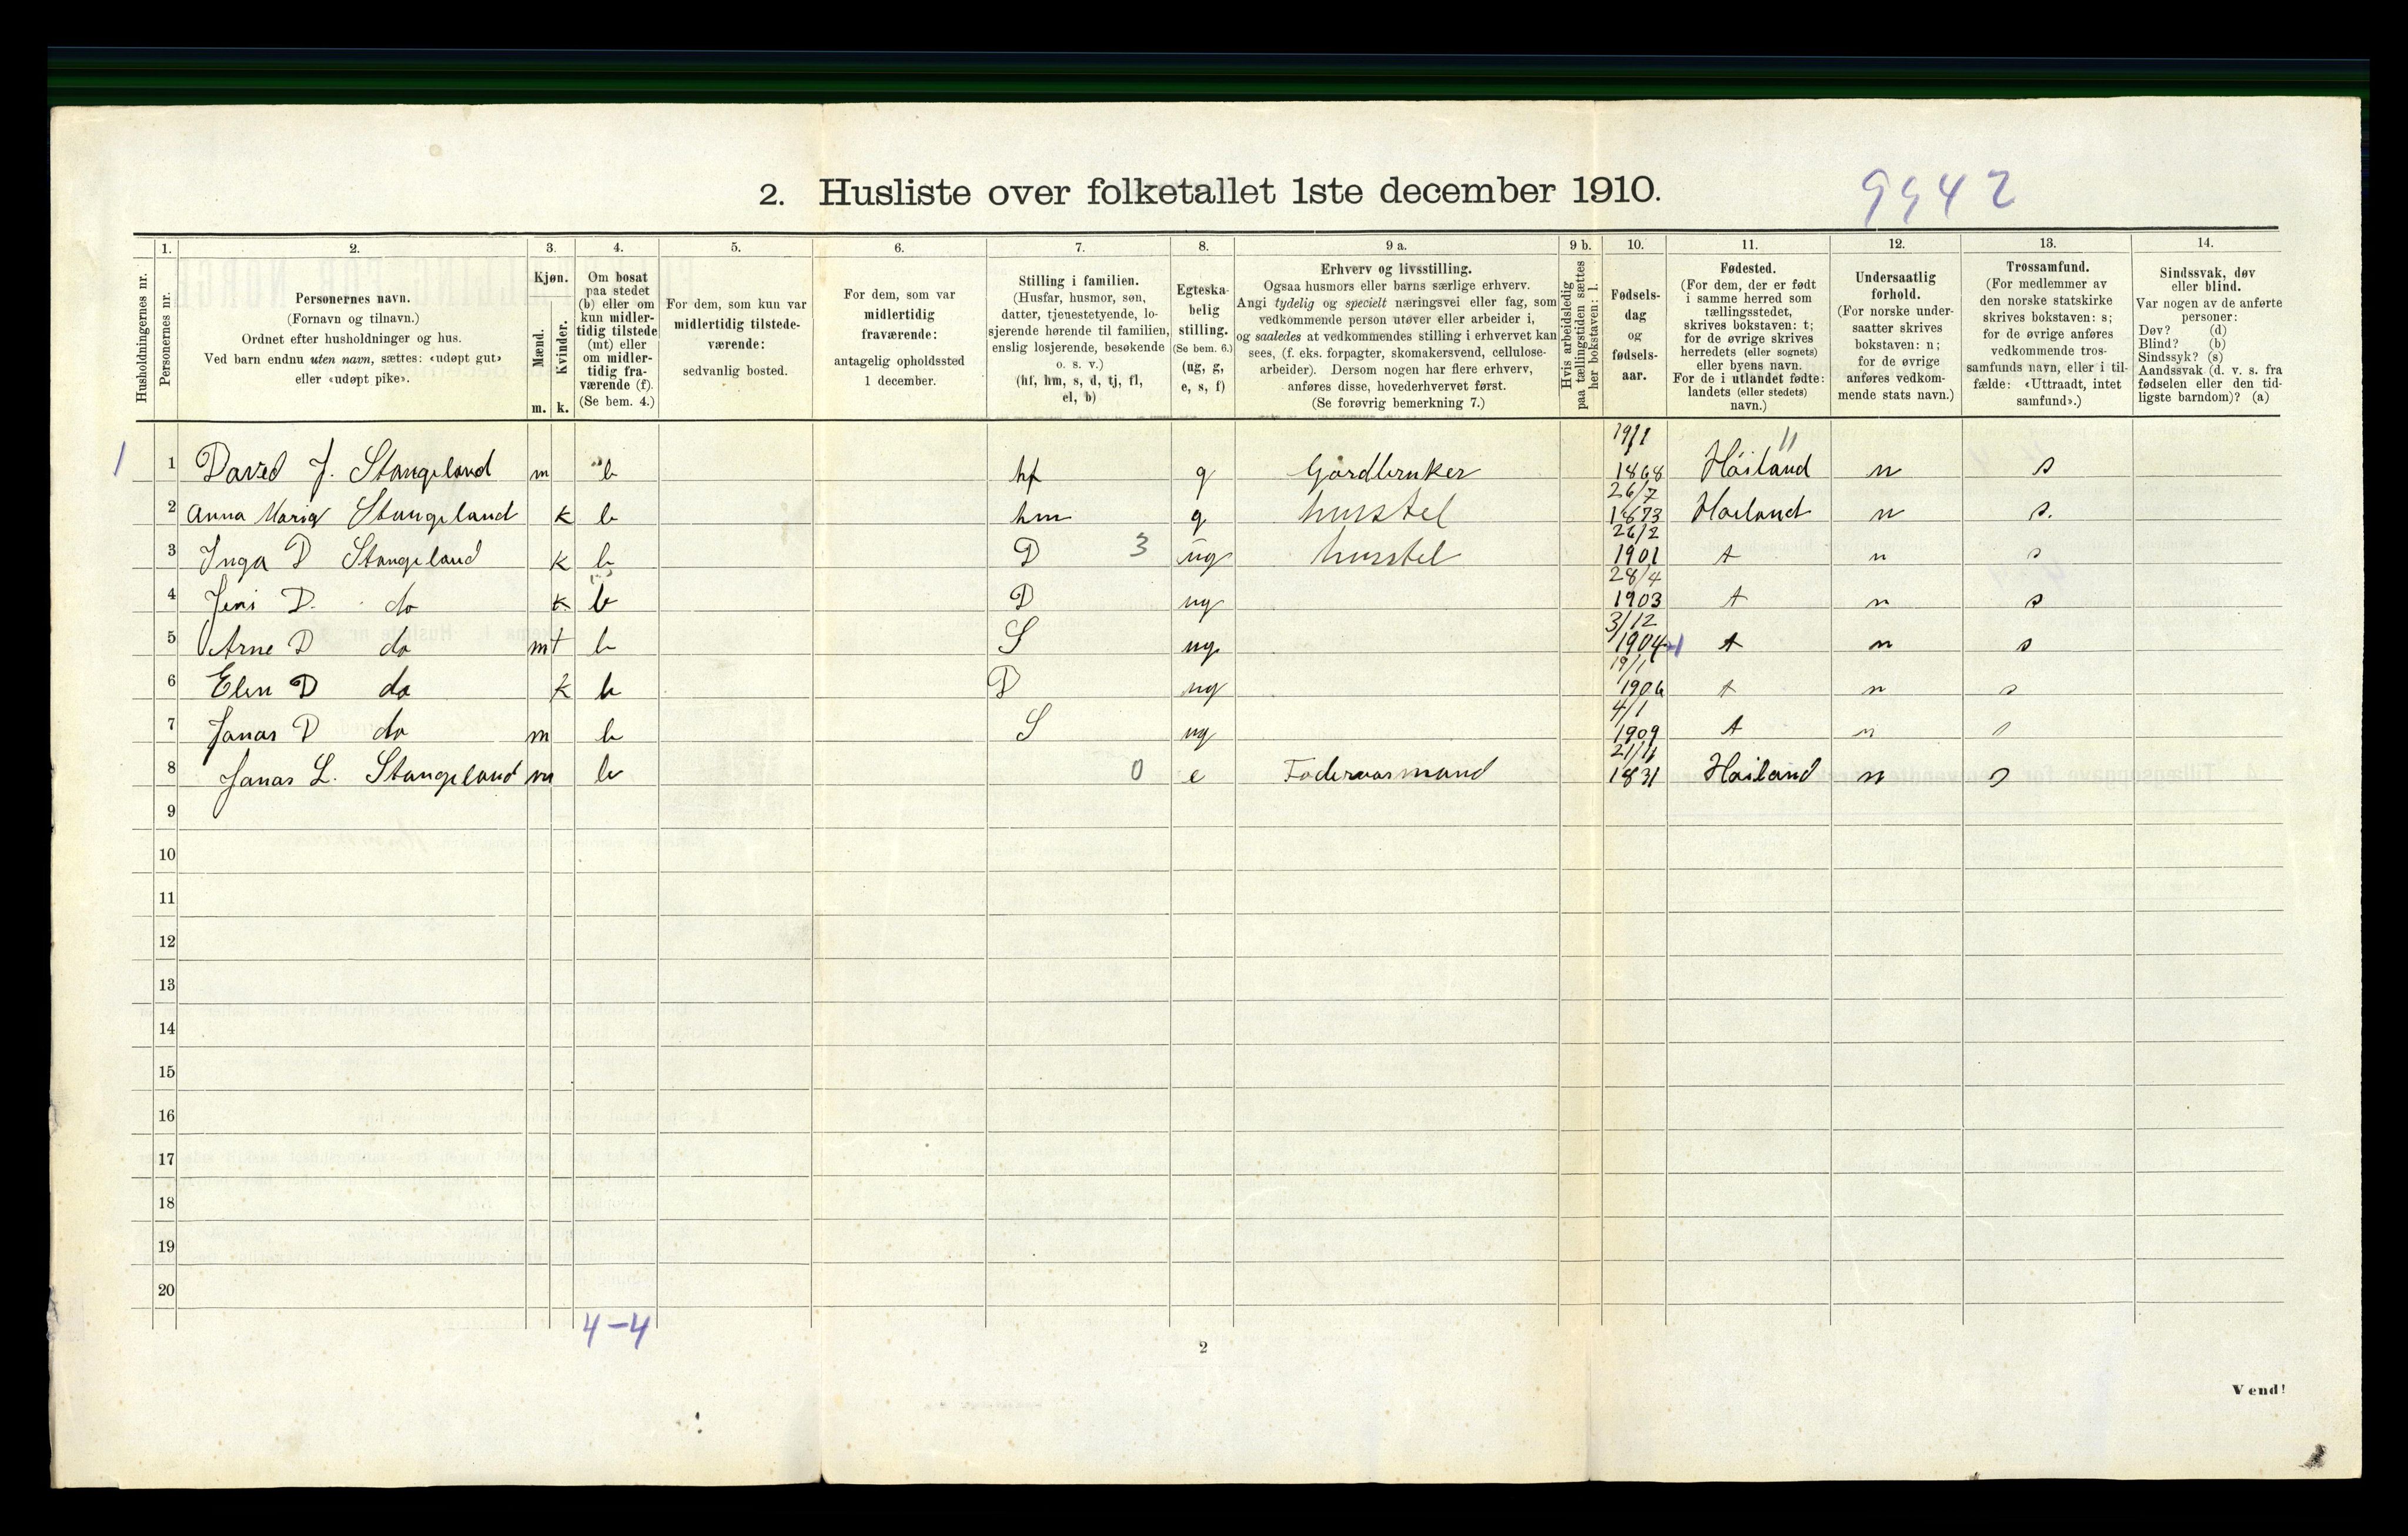 2. Husliste over folketallet 1ste december 1910.
9942
Husholdningernes nr.
1.
Personernes nr.
2.
Personernes navn.
(Fornavn og tilnavn.)
Ordnet efter husholdninger og hus.
Ved barn endnu uten navn, sættes: «udøpt gut»
eller «udøpt pike».
3.
Kjøn.
Mænd.
Kvinder.
m. k.
4.
Om bosat
paa stedet
(b) eller om
kun midler-
tidig tilstede
(mt) eller
om midler-
tidig fra-
værende (f).
(Se bem. 4.)
5.
For dem, som kun var
midlertidig tilstede-
værende:
sedvanlig bosted.
6.
For dem, som var
midlertidig
fraværende:
antagelig opholdssted
1 december.
7.
Stilling i familien.
(Husfar, husmor, søn,
datter, tjenestetyende, lo-
sjerende hørende til familien,
enslig losjerende, besøkende
o. s. v.)
(hf, hm, s, d, tj, fl,
el, b)
8.
Egteska-
belig
stilling.
(Se bem. 6.)
(ug, g,
e, s, f)
9 a.
Erhverv og livsstilling.
Ogsaa husmors eller barns særlige erhverv.
Angi tydelig og specielt næringsvei eller fag, som
vedkommende person utøver eller arbeider i,
og saaledes at vedkommendes stilling i erhvervet kan
sees, (f. eks. forpagter, skomakersvend, cellulose-
arbeider). Dersom nogen har flere erhverv,
anføres disse, hovederhvervet først.
(Se forøvrig bemerkning 7.)
9 b.
Hvis arbeidsledig
paa tællingstiden sættes
her bokstaven: l.
10.
Fødsels-
dag
og
fødsels-
aar.
11.
Fødested.
(For dem, der er født
i samme herred som
tællingsstedet,
skrives bokstaven: t;
for de øvrige skrives
herredets (eller sognets)
eller byens navn.
For de i utlandet fødte:
landets (eller stedets)
navn.)
12.
Undersaatlig
forhold.
(For norske under-
saatter skrives
bokstaven: n;
for de øvrige
anføres vedkom-
mende stats navn.)
13.
Trossamfund.
(For medlemmer av
den norske statskirke
skrives bokstaven: s;
for de øvrige anføres
vedkommende tros-
samfunds navn, eller i til-
fælde: «Uttraadt, intet
samfund».)
14.
Sindssvak, døv
eller blind.
Var nogen av de anførte
personer:
Døv? (d)
Blind? (b)
Sindssyk? (s)
Aandssvak (d. v. s. fra
fødselen eller den tid-
ligste barndom)? (a)
1 1 David J. Stangeland m b hf g Gårdbruker 19/1 1868 Høiland n s
2 Anna Maria Stangeland k b hm g husstel 26/7 1873 Høiland n s.
3 Inga D Stangeland k b D 3 ug husstel 26/2 1901 t n s
4 Jeni D. do k b D ug 28/4 1903 t n s
5 Arne D do m b S ug 3/12 1904 t n s
6 Elen D do k b D ug 19/1 1906 t n s
7 Jonas D do m b S ug 4/1 1909 t n s
8 Jonas L. Stangeland m b 0 e Foderaasmand 21/11 1831 Høiland n s
9
10
11
12
13
14
15
16
17
18
19
20
4-4
2
Vend!